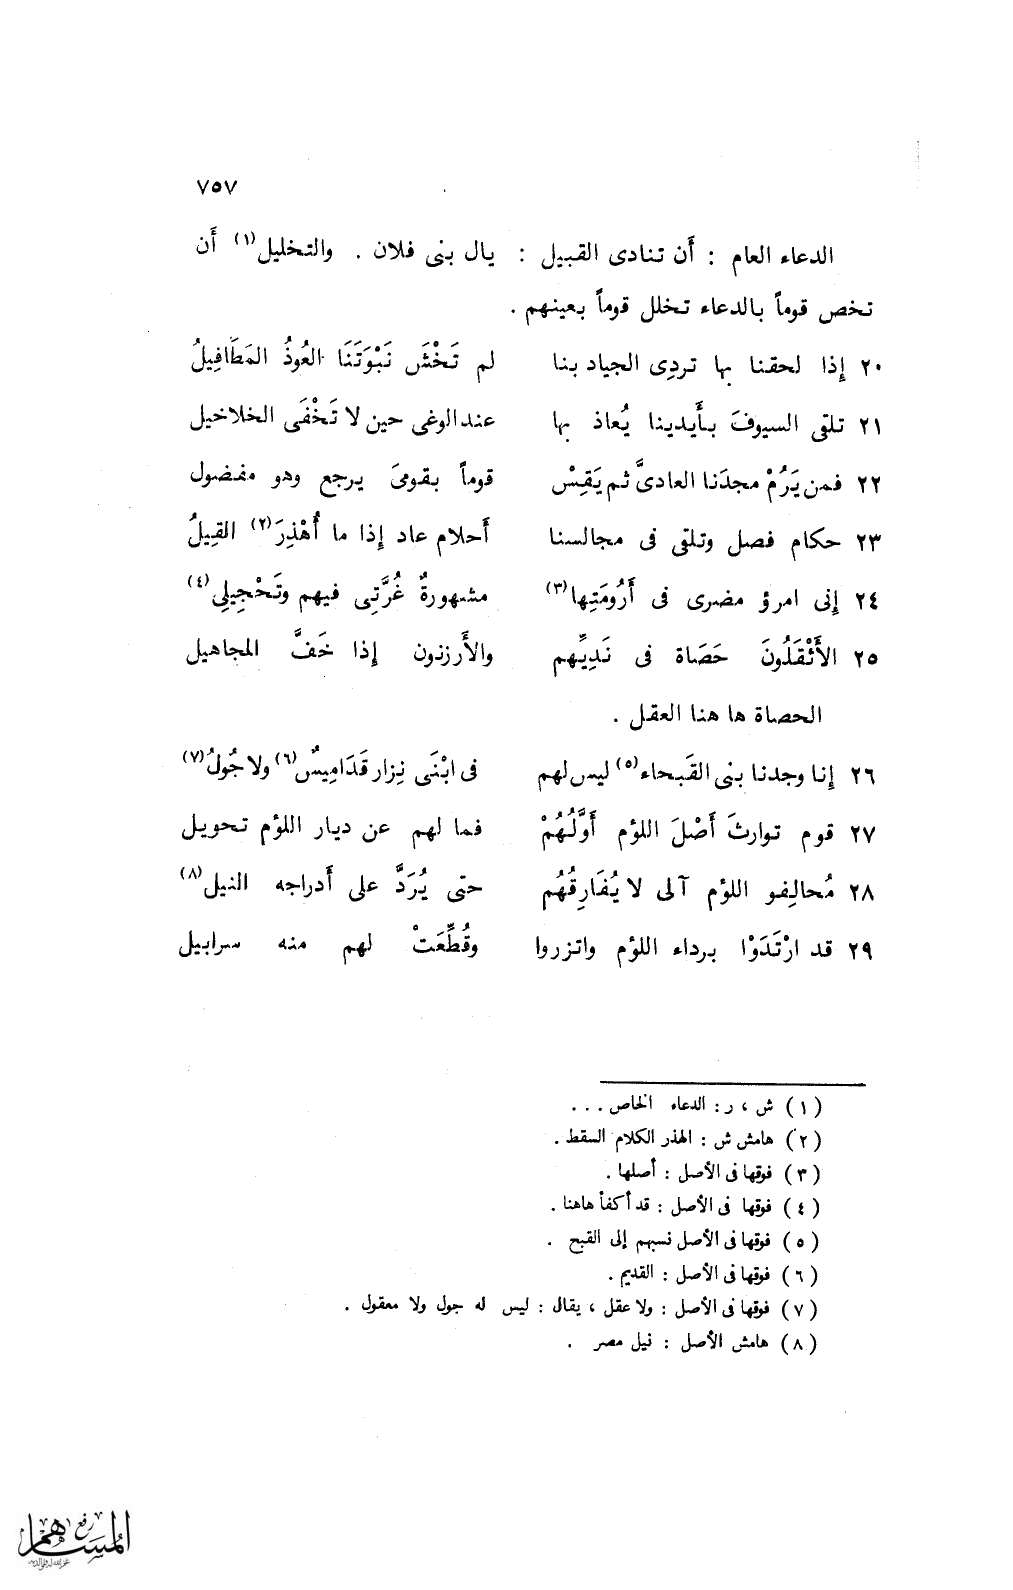 ٧٥٧
الدعاء العام : أَن تنادى القبيل : يال بنى فلان . والتخليل(١) أَن
تخص قوماً بالدعاء تخلل قوماً بعينهم .
٢٠ إِذا لحقنا بها تردِى الجياد بنا لم تَخْشَ نَبْوَتَنَا العُوذُ المَطَافِيلُ
٢١ تلقى السيوفَ بأَيدينا يُعاذ بها عند الوغى حين لا تَخْفَى الخلاخيل
٢٢ فمن يَرُمْ مجدَنا العادىَّ ثم يَقِسْ قوماً بقومىَ يرجع وهو مفضول
٢٣ حكام فصل وتلقى فى مجالسنا أَحلام عاد إِذا ما أُهْذِرَ(٢) القِيلُ
٢٤ إِنى امرؤ مضرى فى أَرُومَتِها(٣) مشهورةٌ غُرَّتِى فيهم وتَحْجِيلِى(٤)
٢٥ الأَثْقَلُونَ حَصَاة فى نَدِيِّهم والأَرزنون إِذا خَفَّ المجاهيل
الحصاة ها هنا العقل .
٢٦ إِنا وجدنا بنى القَبحاء(٥) ليس لهم فى ابْنَى نِزار قَدَامِيسٌ(٦) ولا جُولُ(٧)
٢٧ قوم توارثَ أَصْلَ اللؤم أَوَّلُهُمْ فما لهم عن ديار اللؤم تحويل
٢٨ مُحالِفو اللؤم آلى لا يُفَارِقُهُم حتى يُرَدَّ على أَدراجه النيل(٨)
٢٩ قد ارْتَدَوْا برداء اللؤم واتزروا وقُطِّعَتْ لهم منه سرابيل
(١) ش ، ر : الدعاء الخاص . . .
(٢) هامش ش : الهذر الكلام السقط .
(٣) فوقها فى الأصل : أصلها .
(٤) فوقها فى الأصل : قد أكفأ هاهنا .
(٥) فوقها فى الأصل نسبهم إلى القبح .
(٦) فوقها فى الأصل : القديم .
(٧) فوقها فى الأصل : ولا عقل ، يقال : ليس له جول ولا معقول .
(٨) هامش الأصل : نيل مصر .